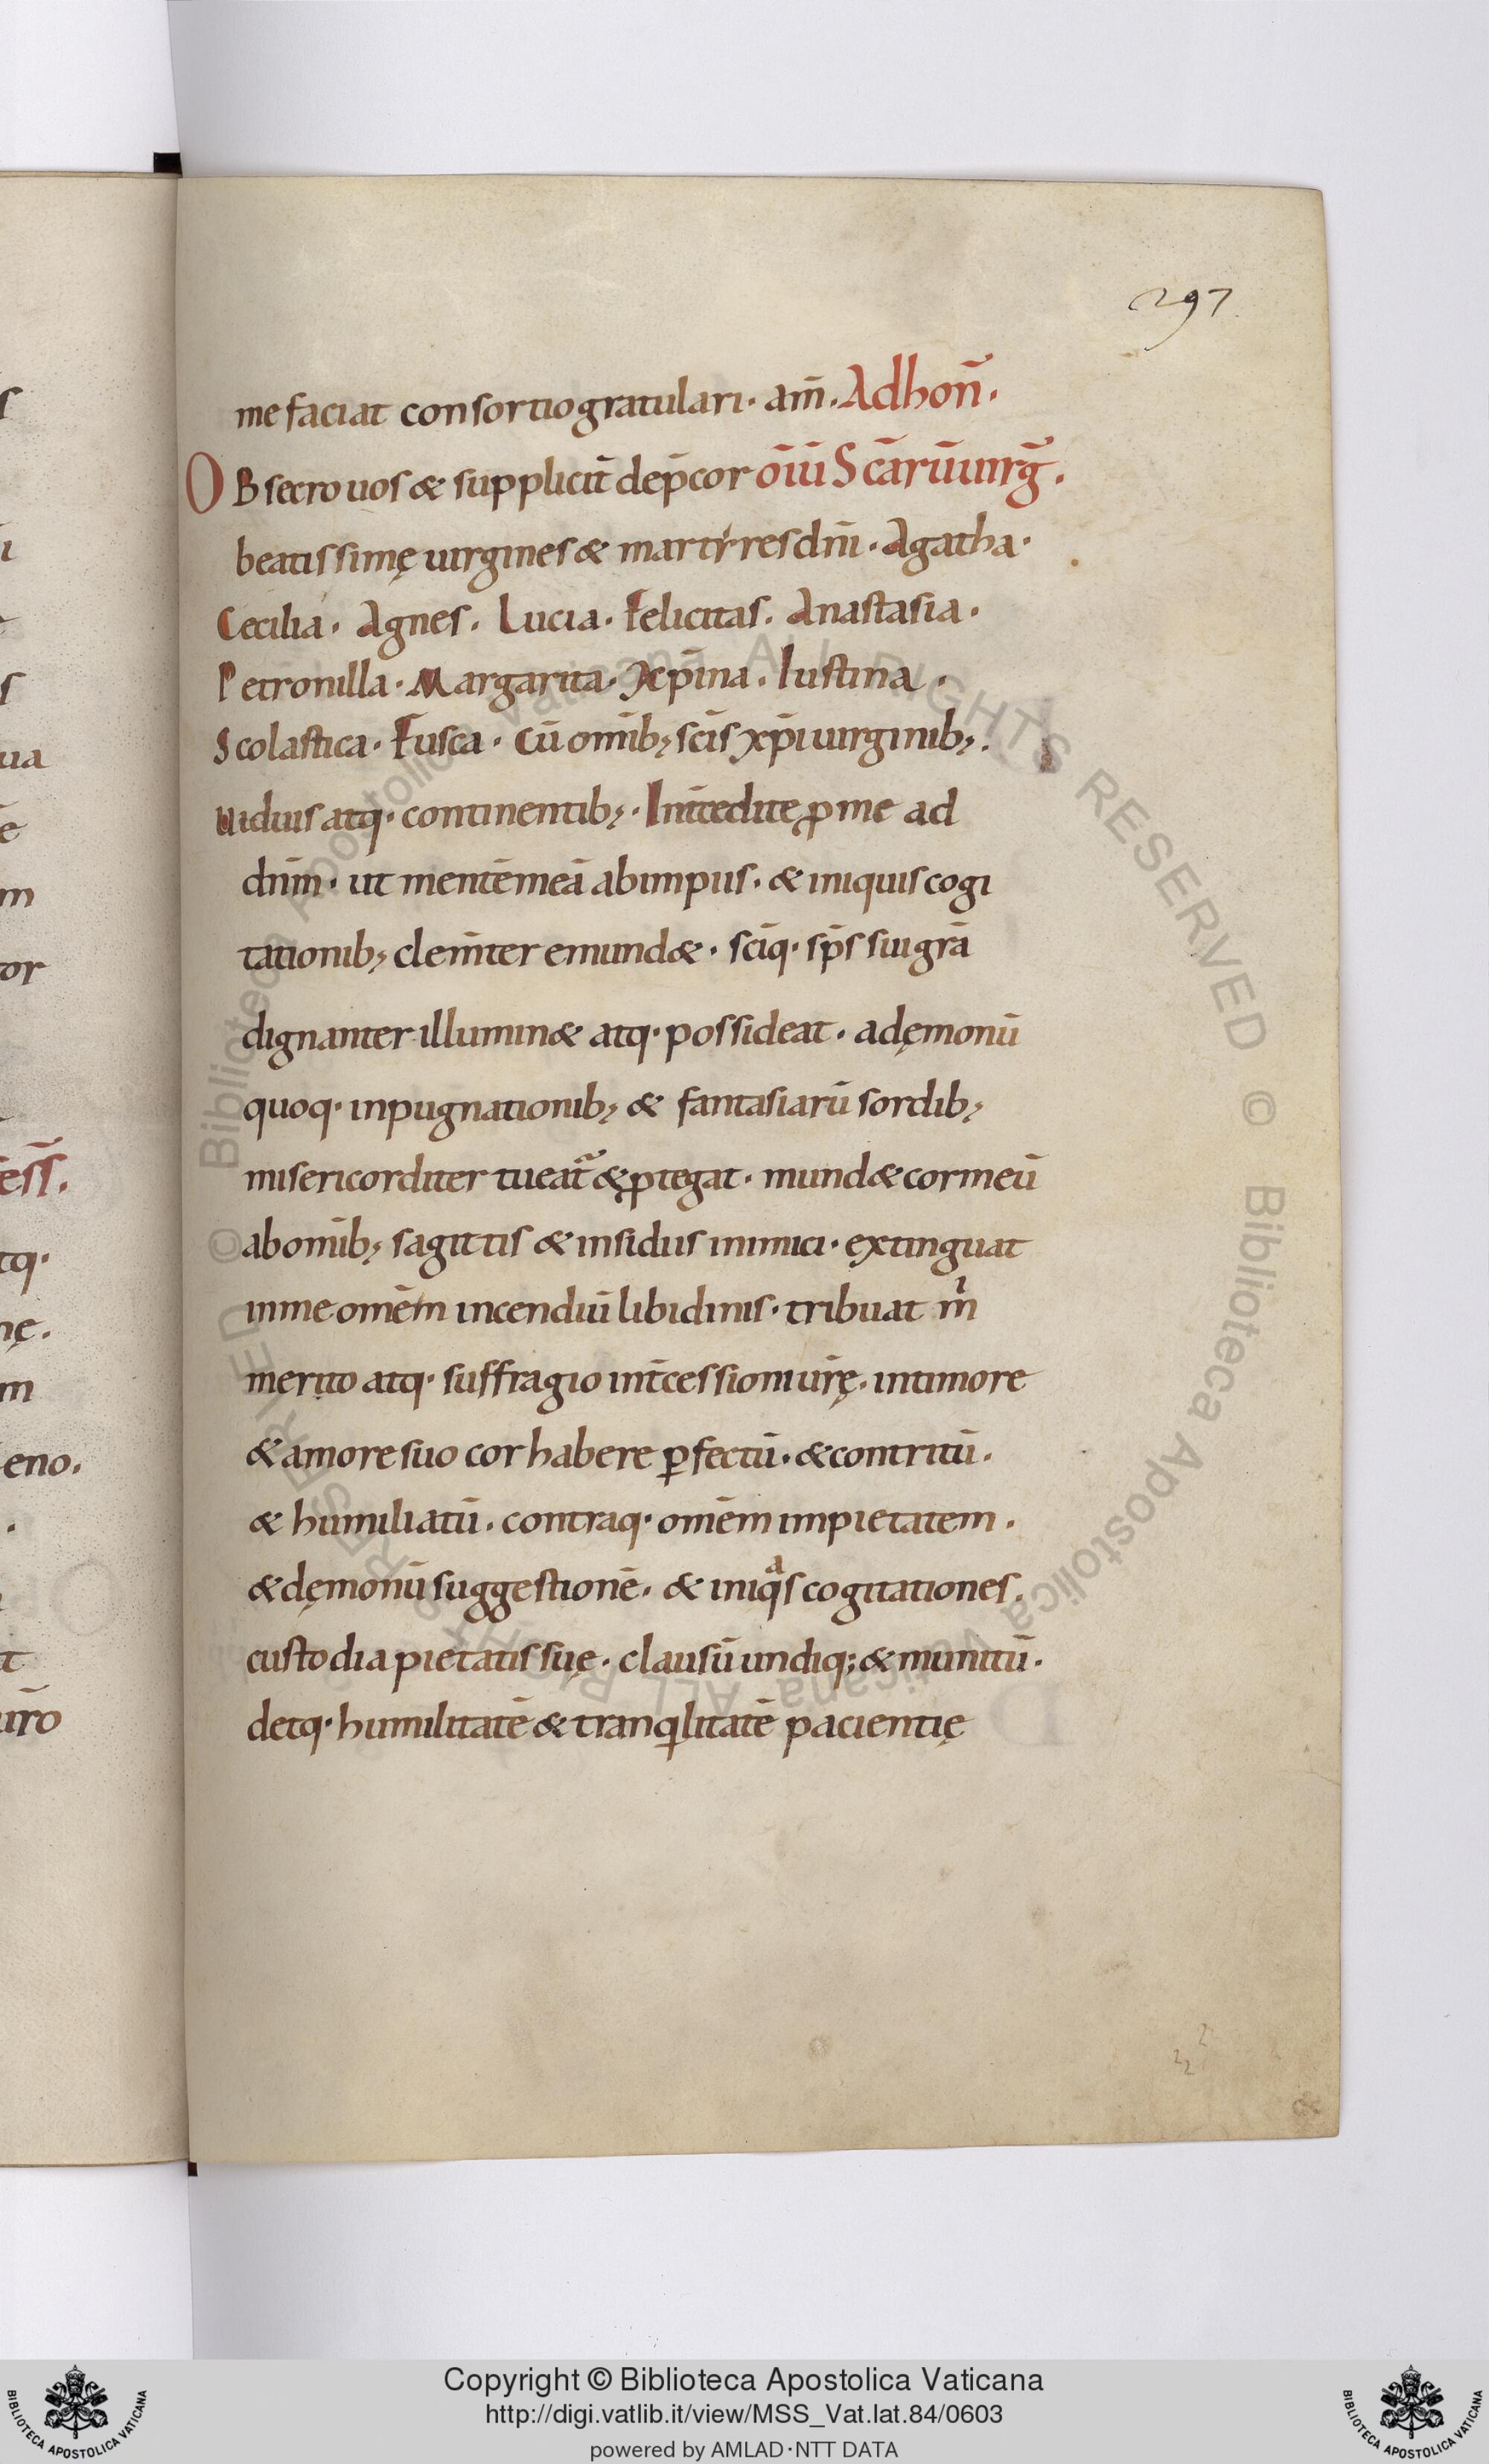 297
me faciat consortio gratulari· am̄. Ad hon̄.
OBsecro uos & supplicit̄ dep̄cor oīū Scārū uirḡ.
beatissimę uirgines & martyres dn̄i· Agatha·
Cecilia· Agnes. Lucia· Felicitas. Anastasia·
Petronilla· Margarita· Xp̄ina. Iustina·
Scolastica· Fusca· Cū om̄ib; sc̄is xp̄i uirginib;.
uiduis atq· continentib;· Int̄cedite ꝓ me ad
dn̄m· ut mentē meā ab impiis· & iniquis cogi
tationib; clem̄ter emund&· sc̄iq· sp̄s sui grā
dignanter illumin& atq· possideat· a dęmonū
quoq· inpugnationib; & fantasiarū sordib;
misericorditer tueat̄ & ꝓtegat· mund& cor meū
ab om̄ib; sagittis & insidiis inimici· extinguat
in me omēm incendiū libidinis· tribuat m̄
merito atq· suffragio int̄cessioni ur̄ę· in timore
& amore suo cor habere ꝑfectū· & contritū.
& humiliatū. contraq· omēm impietatem.
& dęmonū suggestionē· & iniqͣs cogitationes.
custodia pietatis suę· clausū undiq; & munitū·
detq· humilitatē & tranqlitatē pacientię
s
i
s
ua
ē
m
or
ess̄.
tq·
nę.
m
eno.
ur̄o
Copyright © Biblioteca Apostolica Vaticana
http://digi.vatlib.it/view/MSS_Vat.lat.84/0603
powered by AMLAD·NTT DATA
BIBLIOTECA APOSTOLICA VATICANA
BIBLIOTECA APOSTOLICA VATICANA
© Biblioteca Apostolica Vaticana ALL RIGHTS RESERVED
© Biblioteca Apostolica Vaticana ALL RIGHTS RESERVED